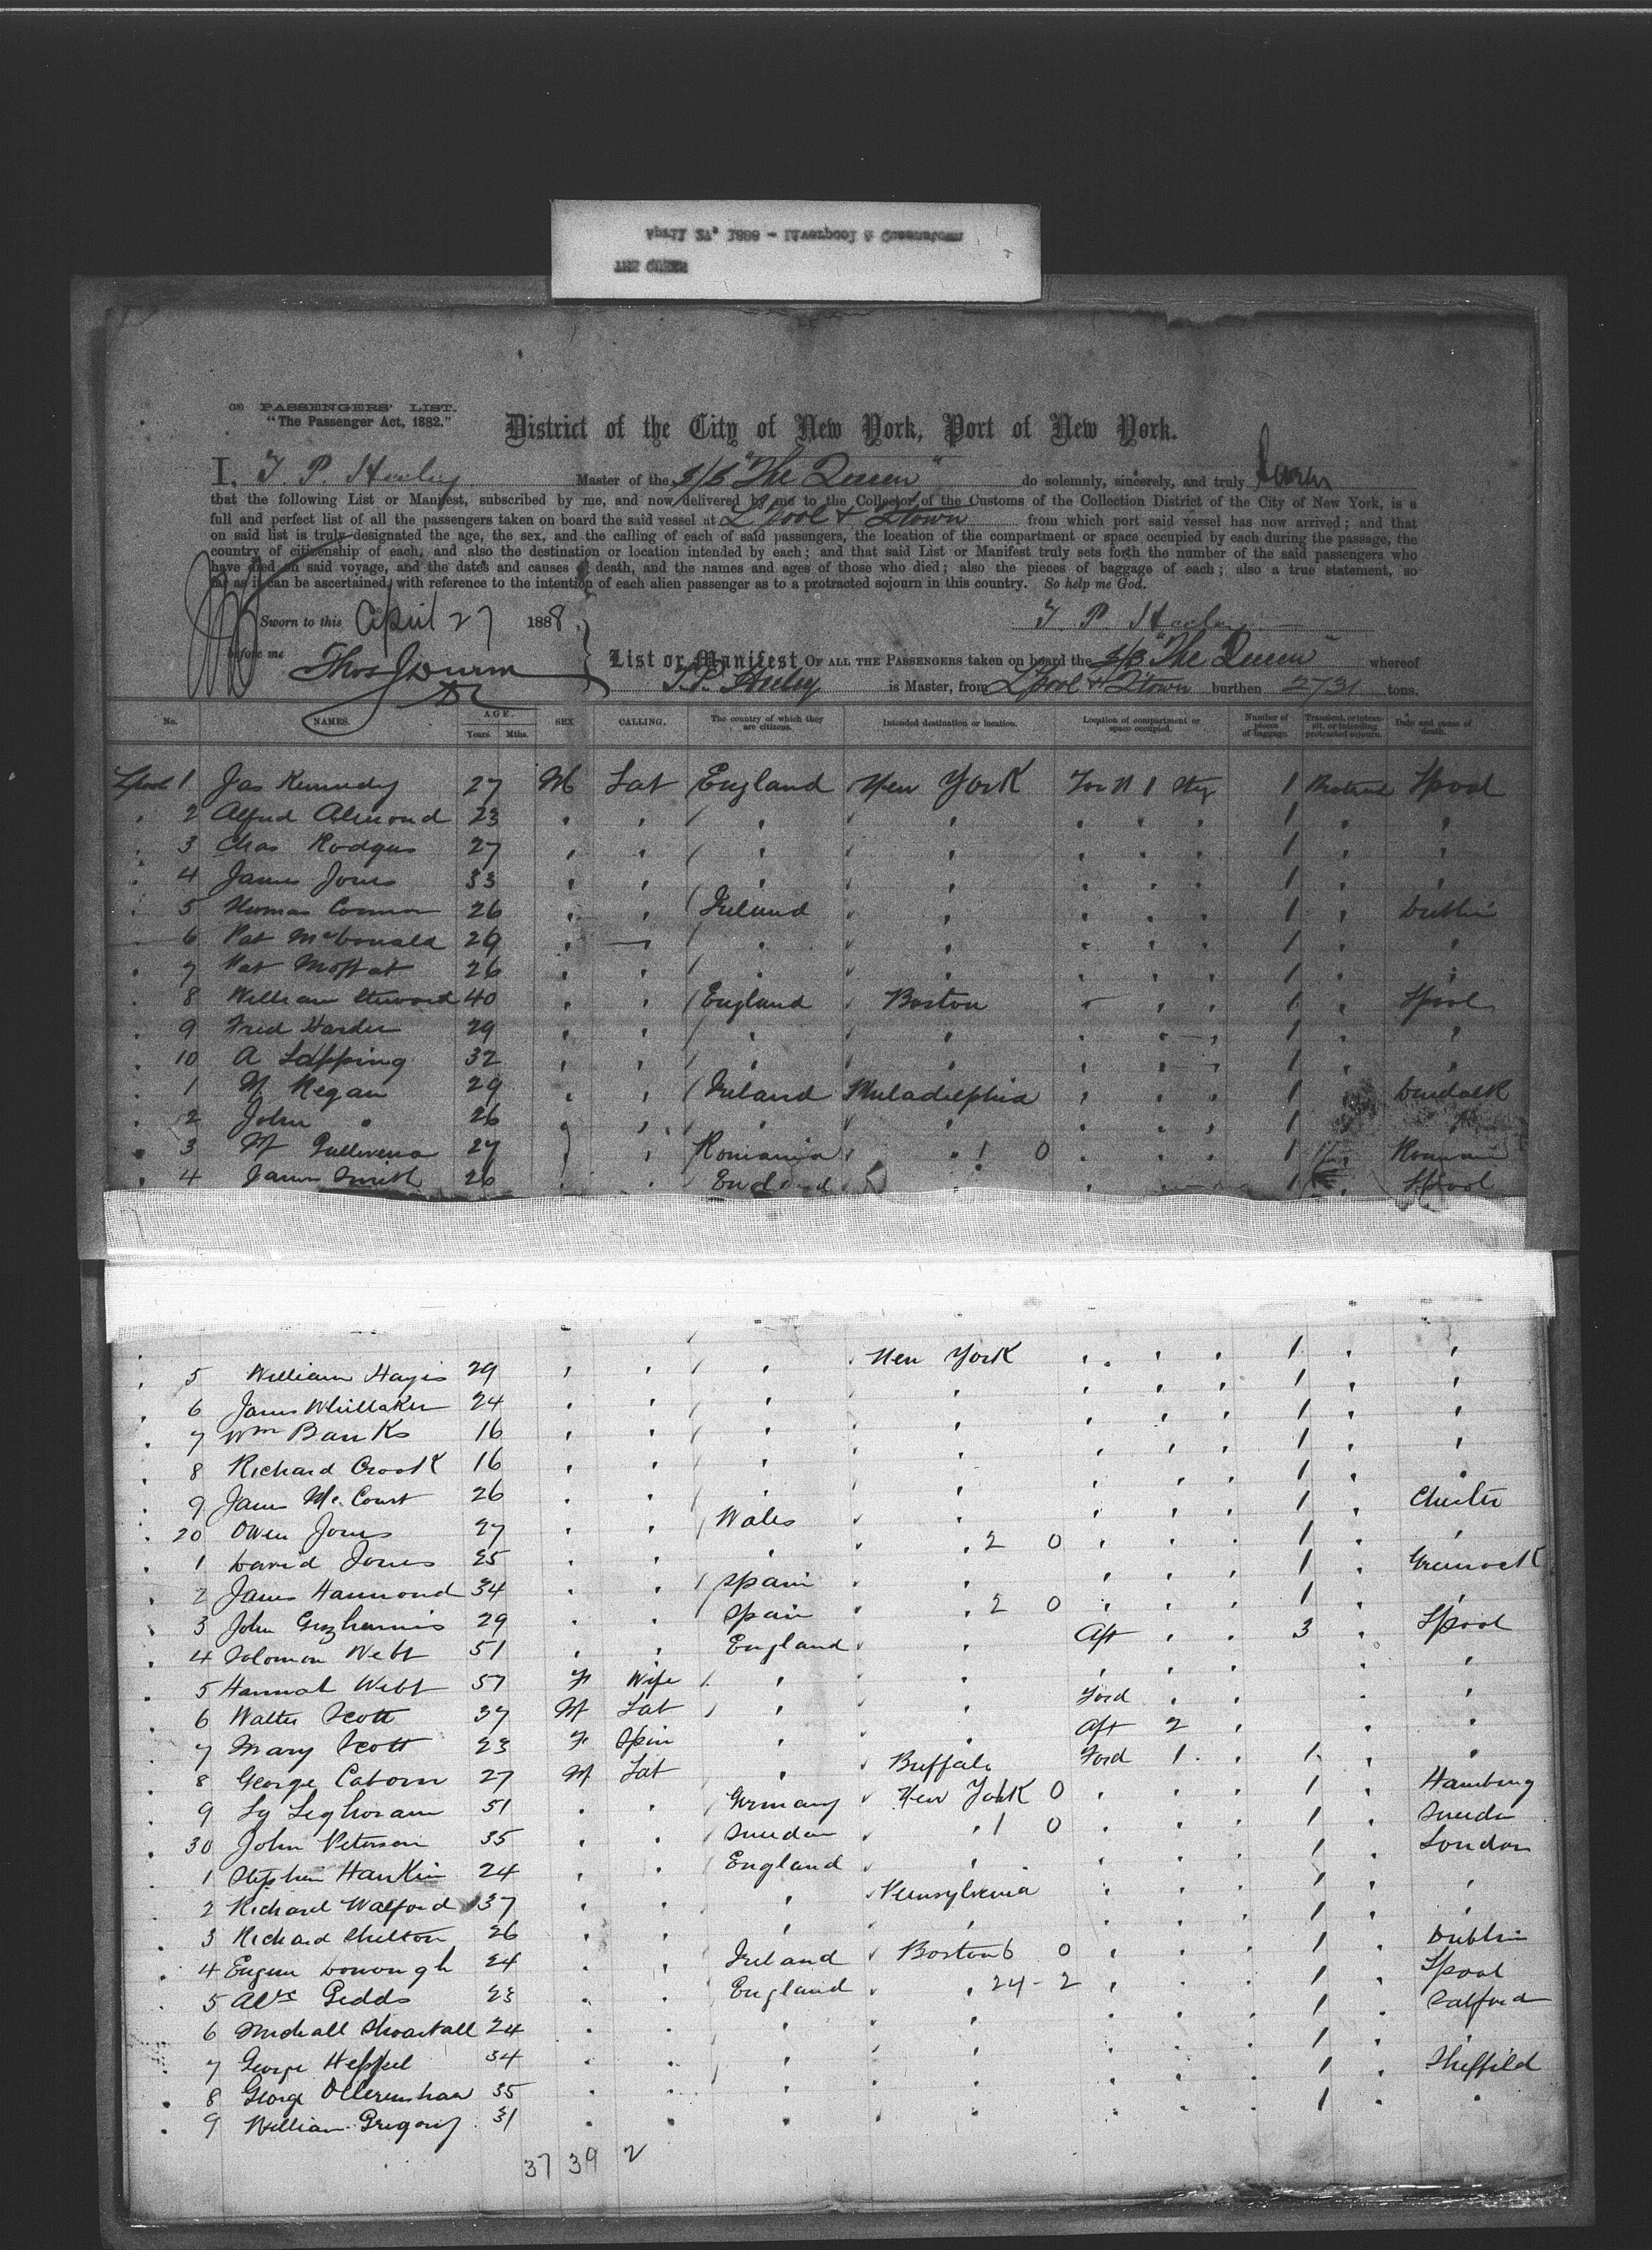 April 27, 1888 - Liverpool & Queenstown
THE QUEEN
(18) PASSENGERS' LIST.
"The Passenger Act, 1882."
District of the City of New York, Port of New York.
I, T. P. Heeley Master of the S/S "The Queen" do solemnly, sincerely, and truly swear
that the following List or Manifest, subscribed by me, and now delivered by me to the Collector of the Customs of the Collection District of the City of New York, is a
full and perfect list of all the passengers taken on board the said vessel at L'pool & Q'town from which port said vessel has now arrived; and that
on said list is truly designated the age, the sex, and the calling of each of said passengers, the location of the compartment or space occupied by each during the passage, the
country of citizenship of each, and also the destination or location intended by each; and that said List or Manifest truly sets forth the number of the said passengers who
have died on said voyage, and the dates and causes of death, and the names and ages of those who died; also the pieces of baggage of each; also a true statement, so
far as it can be ascertained, with reference to the intention of each alien passenger as to a protracted sojourn in this country. So help me God.
Sworn to this April 27 1888. T. P. Heeley
before me
List or Manifest OF ALL THE PASSENGERS taken on board the S/S "The Queen" whereof
T. P. Heeley is Master, from L'pool & Q'town burthen 2731 tons.
No. NAMES. AGE. Years Mths. SEX CALLING. The country of which they are citizens. Intended destination or location. Location of compartment or space occupied. Number of pieces of baggage. Transient, or in transit, or intending protracted sojourn. Date and cause of death.
L'pool 1 Jas Kennedy 27 M Lab England New York For'd 1 Stg 1 L'pool
2 Alfred Almond 23 1
3 Chas Rodgers 27 1
4 James Jones 33 1
5 Thomas Connor 26 Ireland 1 Dublin
6 Pat McDonald 29 1
7 Pat Moffat 26 1
8 William Steward 40 England Boston 1 L'pool
9 Fred Harder 29 1
10 A Lapping 32 1
1 M Regan 29 Ireland Philadelphia 1 Dundalk
2 John " 26 1
3 M 27 Romania 1 0 1
4 James Smith 26 England 1 L'pool
5 William Hayes 29 New York 1
6 James Whittaker 24 1
7 Wm Banks 16 1
8 Richard Crook 16 1
9 James McCourt 26 1
20 Owen Jones 27 Wales 1 Chester
1 David Jones 25 2 0 1
2 James Hammond 34 Spain 1 Greenock
3 John 29 Spain 2 0 1
4 Solomon Webb 51 England Aft 3 L'pool
5 Hannah Webb 57 F Wife
6 Walter Scott 37 M Lab Ford
7 Mary Scott 23 F Spin Aft 2
8 George Caborn 27 M Lab Buffalo Ford 1 1
9 51 Germany New York 0 1 Hamburg
30 John Peterson 35 Sweden 1 0 1 Sweden
1 Stephen Hankin 24 England 1 London
2 Richard Walford 37 Pennsylvania 1
3 Richard Shelton 26 1
4 Eugene Donough 24 Ireland Boston 6 0 1 Dublin
5 Alex Gedds 23 England 24-2 1 L'pool
6 24 1 Salford
7 George Heppel 34 1
8 George Ollerenshaw 35 1 Sheffild
9 William Gregory 31 1
37 39 2